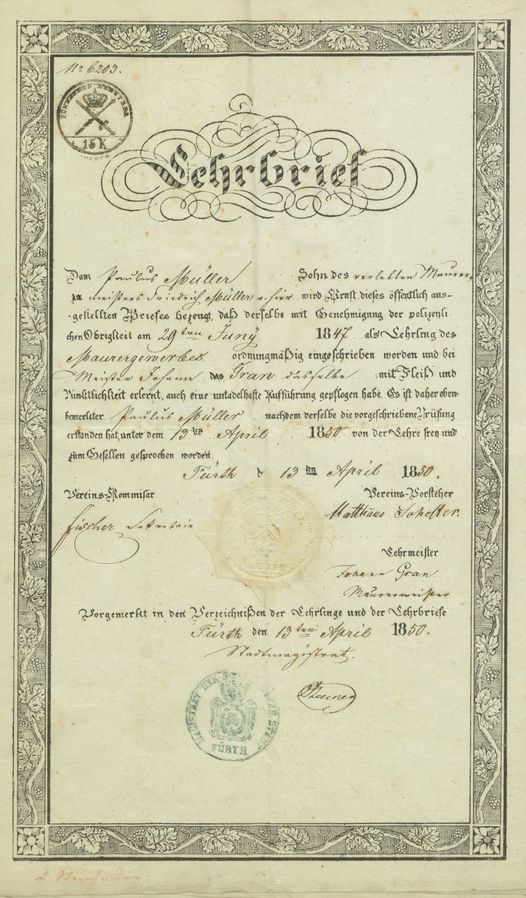 No 6203.
15 K
Lehrbrief
Dem Paulus Müller Sohn des verlebten Maurer-
meisters Friedrich Müller v. hier wird Kraft dieses öffentlich aus-
gestellten Briefes bezeugt, daß derselbe mit Genehmigung der polizeili-
chen Obrigkeit am 29ten Juny 1847. als Lehrling des
Maurergewerbes ordnungmäßig eingeschrieben worden und bei
Meister Johann Gran dasselbe mit Fleiß und
Pünktlichkeit erlernt, auch eine untadelhafte Aufführung gepflogen habe. Es ist daher oben-
bemerkter Paulus Müller nachdem derselbe die vorgeschriebene Prüfung
erstanden hat, unter dem 13ten April 1850 von der Lehre frey und
zum Gesellen gesprochen worden.
Fürth d. 13ten April 1850.
Vereins-Kommisar Vereins-Vorsteher
Fischer Sekretair Matthäus
Lehrmeister
Johann Gran
Maurermeister
Vorgemerkt in den Verzeichnißen der Lehrlinge und der Lehrbriefe
Fürth den 13ten April 1850.
Stadtmagistrat.
MAGISTRAT DER STADT
FÜRTH